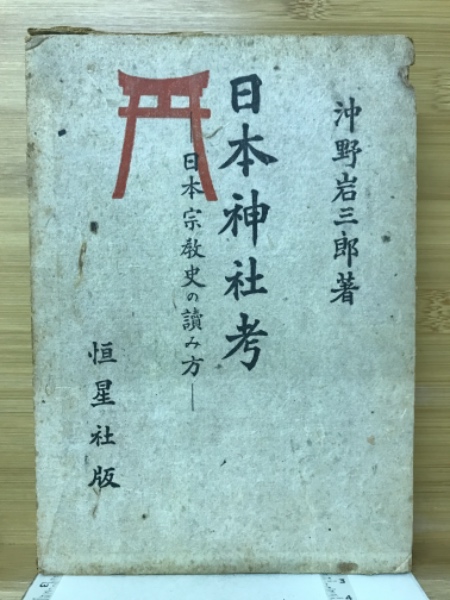 沖野岩三郎著
日本神社考
―日本宗教史の讀み方―
恒星社版
3
4